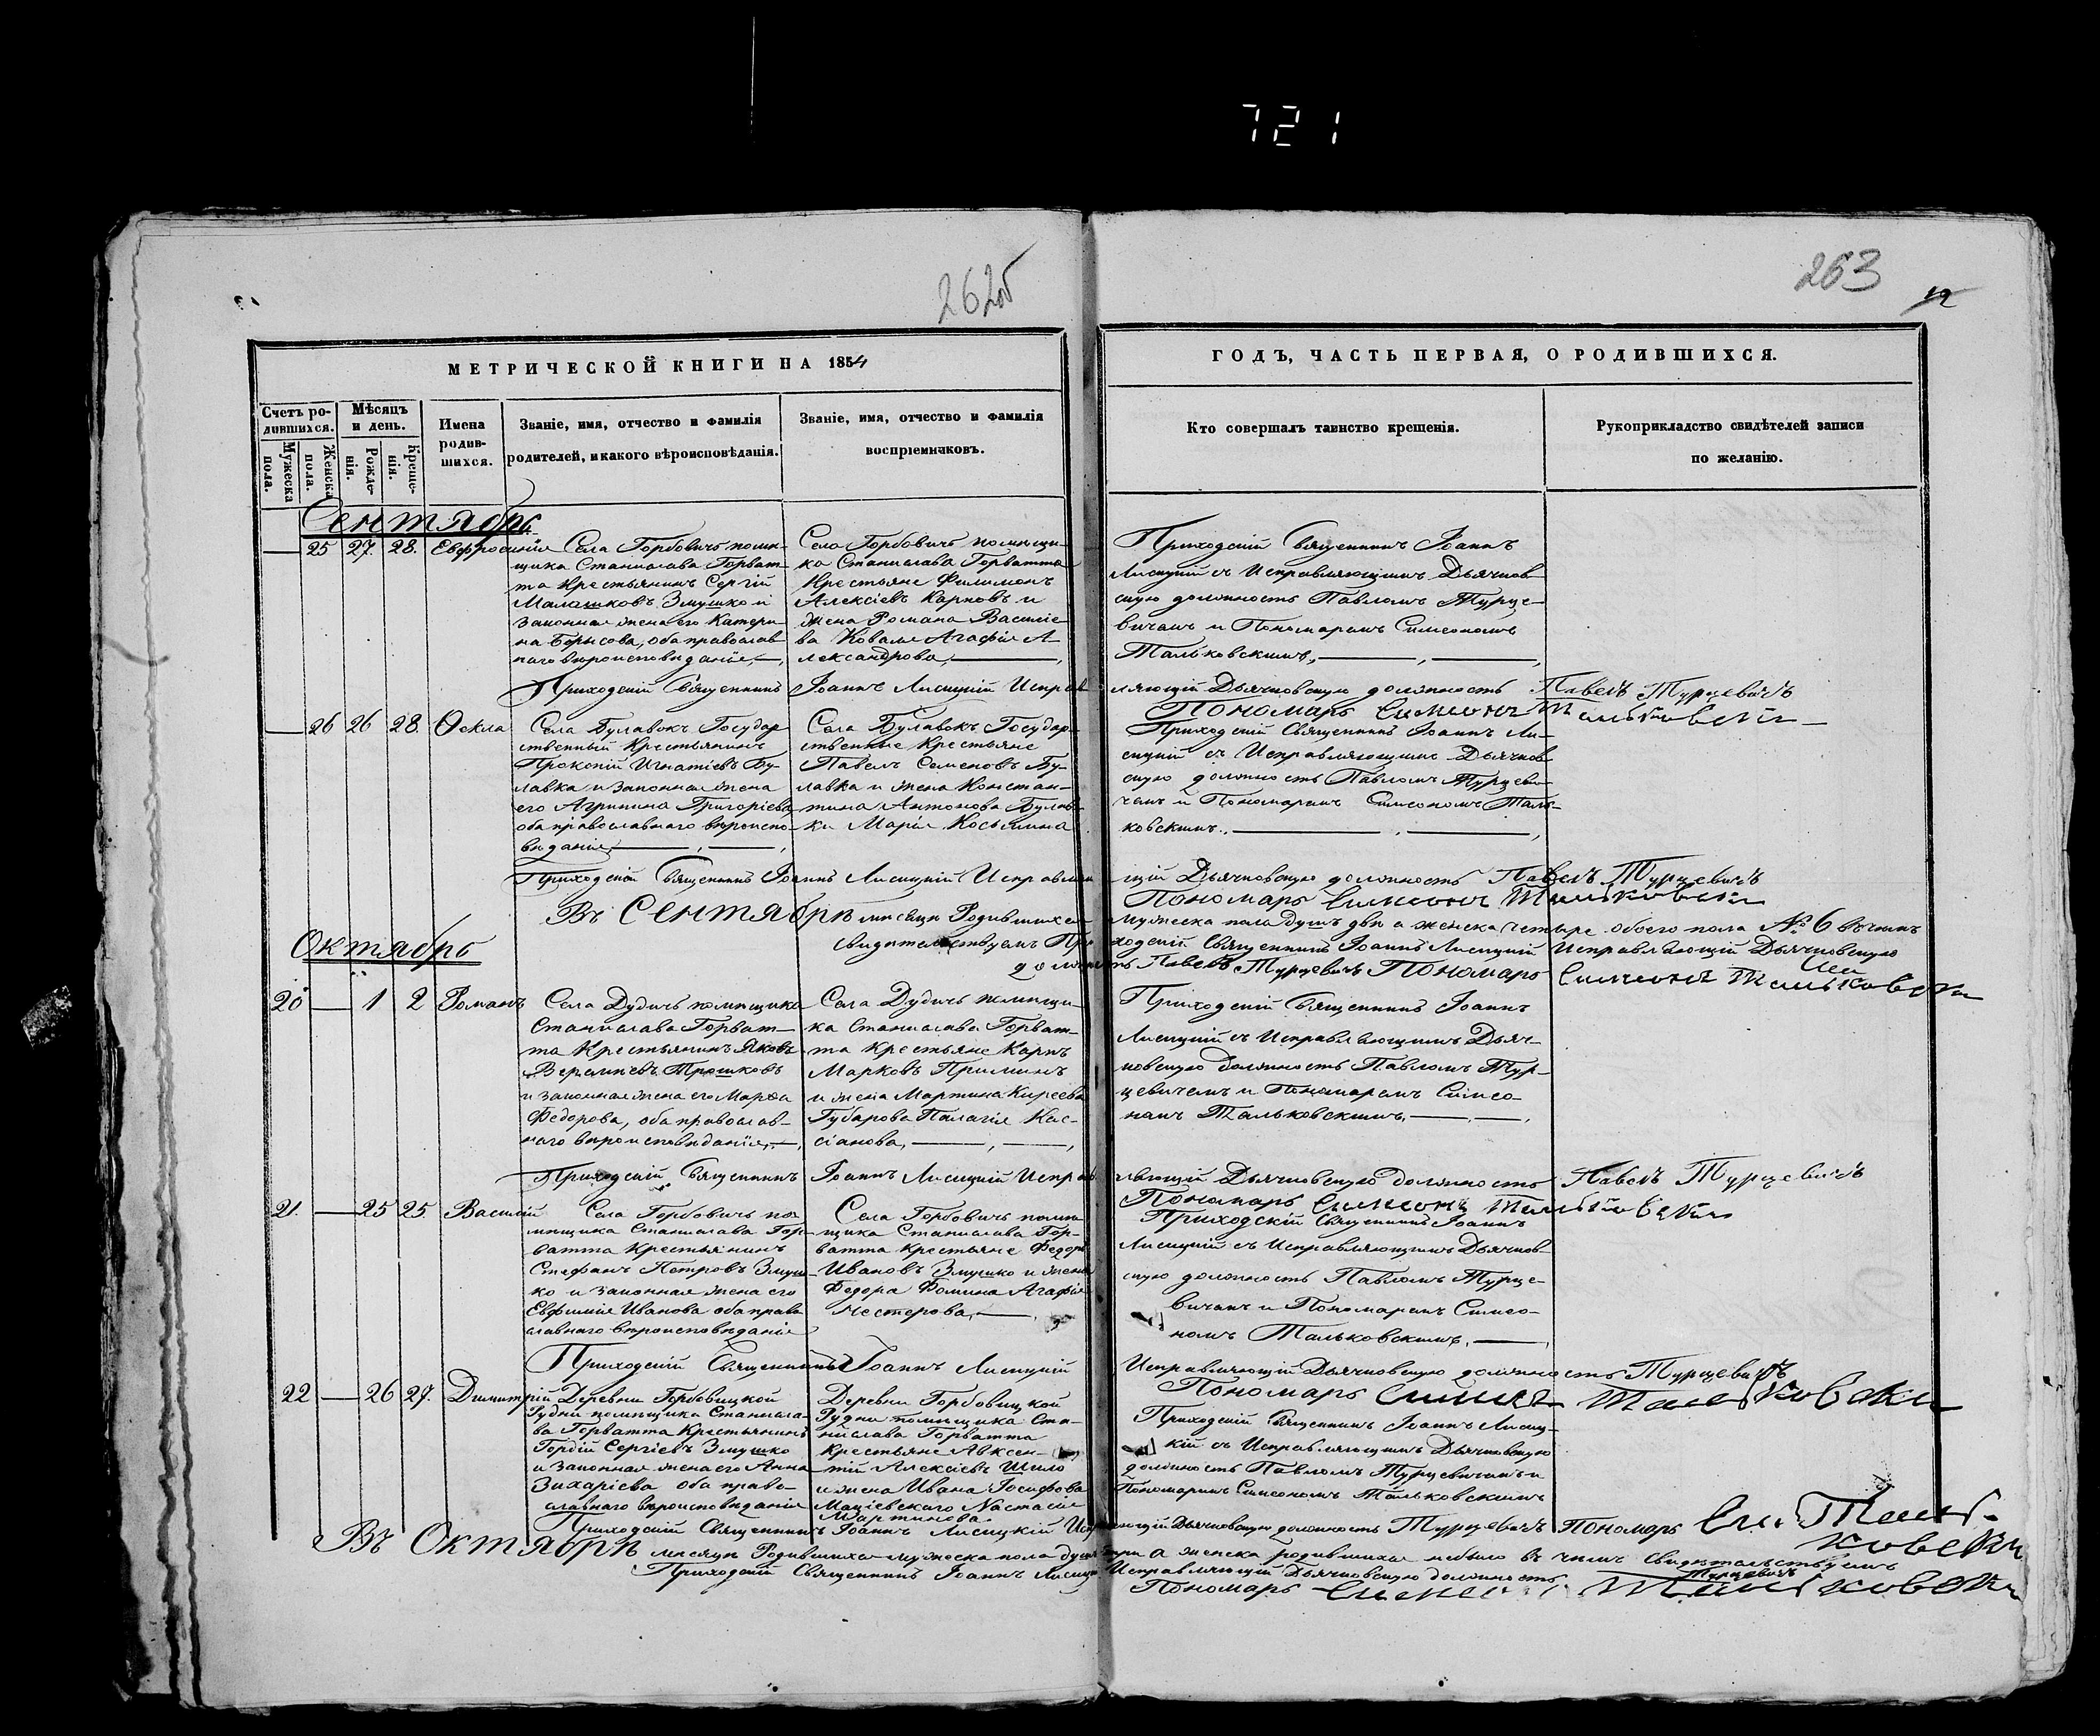 721
262об
263
12
МЕТРИЧЕСКОЙ КНИГИ НА 1854
ГОДЪ, ЧАСТЬ ПЕРВАЯ, О РОДИВШИХСЯ.
Счетъ ро-
дившихся.
Мужеска
пола.
Женска
пола.
Мѣсяцъ
и день.
Рожде-
нія.
Креще-
нія.
Имена
родив-
шихся.
Званіе, имя, отчество и фамилія
родителей, и какого вѣроисповѣданія.
Званіе, имя, отчество и фамилія
воспріемниковъ.
Кто совершалъ таинство крещенія.
Рукоприкладство свидѣтелей записи
по желанію.
Сентябрь
25 27. 28. Евфросинія
Села Горбовичъ помѣ-
щика Станислава Горват-
та Крестьянинъ Сергій
Малашковъ Змушко и
законная жена его Катери-
на Борисова, оба православ-
наго вѣроисповѣданія,
Села Горбовичъ помѣщи-
ка Станислава Горватта
Крестьяне Филимонъ
Алексіевъ Карповъ и
жена Романа Василіе-
ва Коваля Агафія А-
лександрова,
Приходскій Священникъ Іоаннъ
Лисицкій съ Исправляющимъ Дьячков-
скую должность Павломъ Турце-
вичемъ и Пономаремъ Симеономъ
Тальковскимъ,
Приходскій Священникъ Іоаннъ Лисицкій Исправляющій Дьячковскую должность Павелъ Турцевичъ
Пономарь Симеонъ Тальковскій
26 26 28. Ѳекла
Села Булавокъ Государ-
ственный Крестьянинъ
Прокопій Игнатіевъ Бу-
лавка и законная жена
его Агрипина Григоріева
оба православнаго вѣроиспо-
вѣданія,
Села Булавокъ Государ-
ственные Крестьяне
Павелъ Семеновъ Бу-
лавка и жена Констан-
тина Антонова Булав-
ки Марія Косьмина
Приходскій Священникъ Іоаннъ Ли-
сицкій съ Исправляющимъ Дьячков-
скую должность Павломъ Турцеви-
чемъ и Пономаремъ Симеономъ Таль-
ковскимъ.
Приходскій Священникъ Іоаннъ Лисицкій Исправляющій Дьячковскую должность Павелъ Турцевичъ
Пономарь Симеонъ Тальковскій
Въ Сентябрѣ мѣсяцѣ Родившихся мужеска пола душъ двѣ а женска четыре обоего пола № 6 въ чемъ
свидѣтельствуемъ Приходскій Священникъ Іоаннъ Лисицкій Исправляющій Дьячковскую
должность Павелъ Турцевичъ Пономарь Симеонъ Тальковскій
Октябрь
20 1 2 Романъ
Села Дудичъ помѣщика
Станислава Горват-
та Крестьянинъ Яковъ
Веремѣевъ Трошковъ
и законная жена его Марѳа
Федорова, оба православ-
наго вѣроисповѣданія,
Села Дудичъ помѣщи-
ка Станислава Горват-
та Крестьяне Карпъ
Марковъ Приминъ
и жена Мартина Киреева
Губарова Палагія Кас-
сіанова,
Приходскій Священникъ Іоаннъ
Лисицкій съ Исправляющимъ Дьяч-
ковскую должность Павломъ Тур-
цевичемъ и Пономаремъ Симео-
номъ Тальковскимъ,
Приходскій Священникъ Іоаннъ Лисицкій Исправляющій Дьячковскую должность Павелъ Турцевичъ
Пономарь Симеонъ Тальковскій
21. 25 25 Василій
Села Горбовичъ по-
мѣщика Станислава Гор-
ватта Крестьянинъ
Стефанъ Петровъ Змуш-
ко и законная жена его
Евфимія Иванова оба право-
славнаго вѣроисповѣданія
Села Горбовичъ помѣ-
щика Станислава Гор-
ватта крестьяне Федоръ
Ивановъ Змушко и жена
Федора Фомина Агафія
Нестерова,
Приходскій Священникъ Іоаннъ
Лисицкій съ Исправляющимъ Дьячков-
скую должность Павломъ Турце-
вичемъ и Пономаремъ Симео-
номъ Тальковскимъ,
Приходскій Священникъ Іоаннъ Лисицкій Исправляющій Дьячковскую должность Турцевичъ
Пономарь Симеонъ Тальковскій
22 26 27. Димитрій
Деревни Горбовицкой
Рудни помѣщика Станисла-
ва Горватта Крестьянинъ
Гордій Сергіевъ Змушко
и законная жена его Анна
Захаріева оба право-
славнаго вѣроисповѣданія
Деревни Горбовицкой
Рудни помѣщика Ста-
нислава Горватта
Крестьяне Авксен-
тій Алексіевъ Шило
и жена Ивана Іосифова
Маціевскаго Настасія
Мартинова
Приходскій Священникъ Іоаннъ Лисиц-
кій съ Исправляющимъ Дьячковскую
должность Павломъ Турцевичемъ и
Пономаремъ Симеономъ Тальковскимъ
Приходскій Священникъ Іоаннъ Лисицкій Исправляющій Дьячковскую должность Турцевичъ Пономарь Сим. Таль-
ковскій
Въ Октябрѣ мѣсяцѣ Родившихся мужеска пола душъ три а женска родившихся небыло въ чемъ свидѣтельствуемъ
Приходскій Священникъ Іоаннъ Лисицкій Исправляющій Дьячковскую должность Турцевичъ
Пономарь Симеонъ Тальковскій